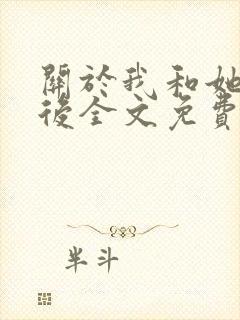 關於我和她
後全文免費
半斗